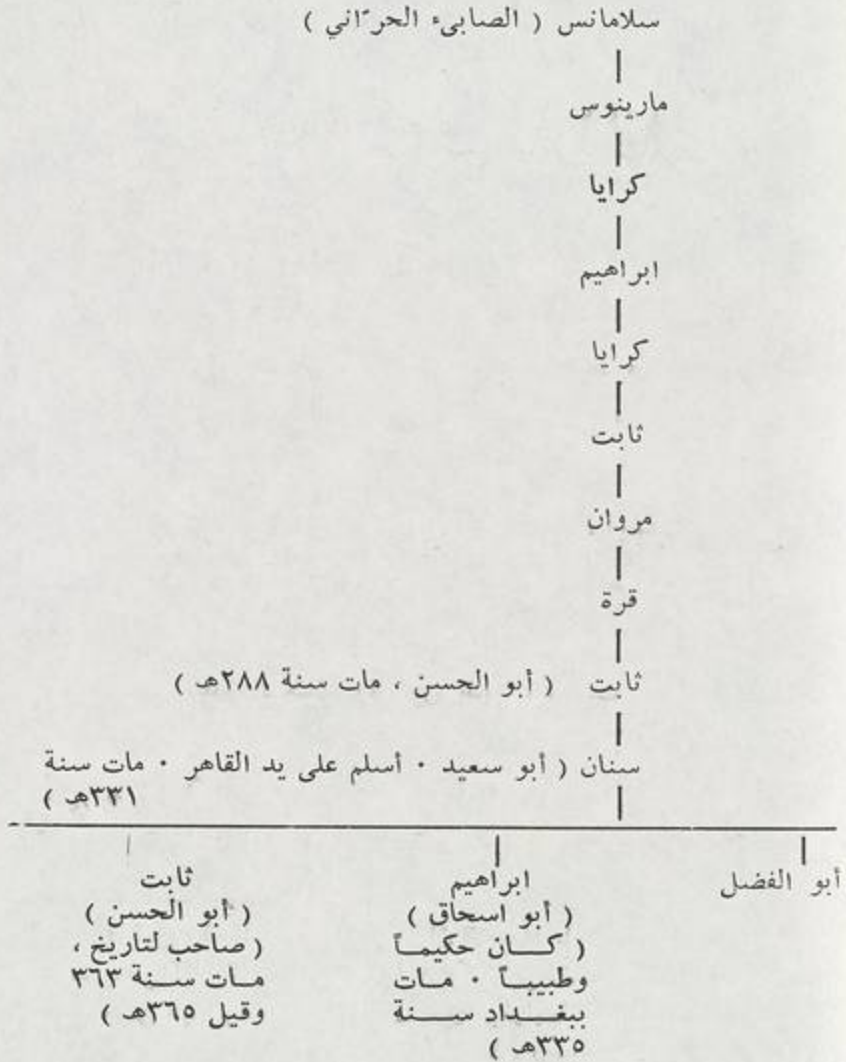 سلامانس ( الصابىء الحرّاني )
مارينوس
كرايا
ابراهيم
كرايا
ثابت
مروان
قرة
ثابت ( أبو الحسن ، مات سنة ٢٨٨هـ )
سنان ( أبو سعيد ٠ أسلم على يد القاهر ٠ مات سنة
٣٣١هـ )
أبو الفضل
ابراهيم
( أبو اسحاق )
( كان حكيماً
وطبيباً ٠ مات
ببغداد سنة
٣٣٥هـ )
ثابت
( أبو الحسن )
( صاحب لتاريخ ،
مات سنة ٣٦٣
وقيل ٣٦٥هـ )